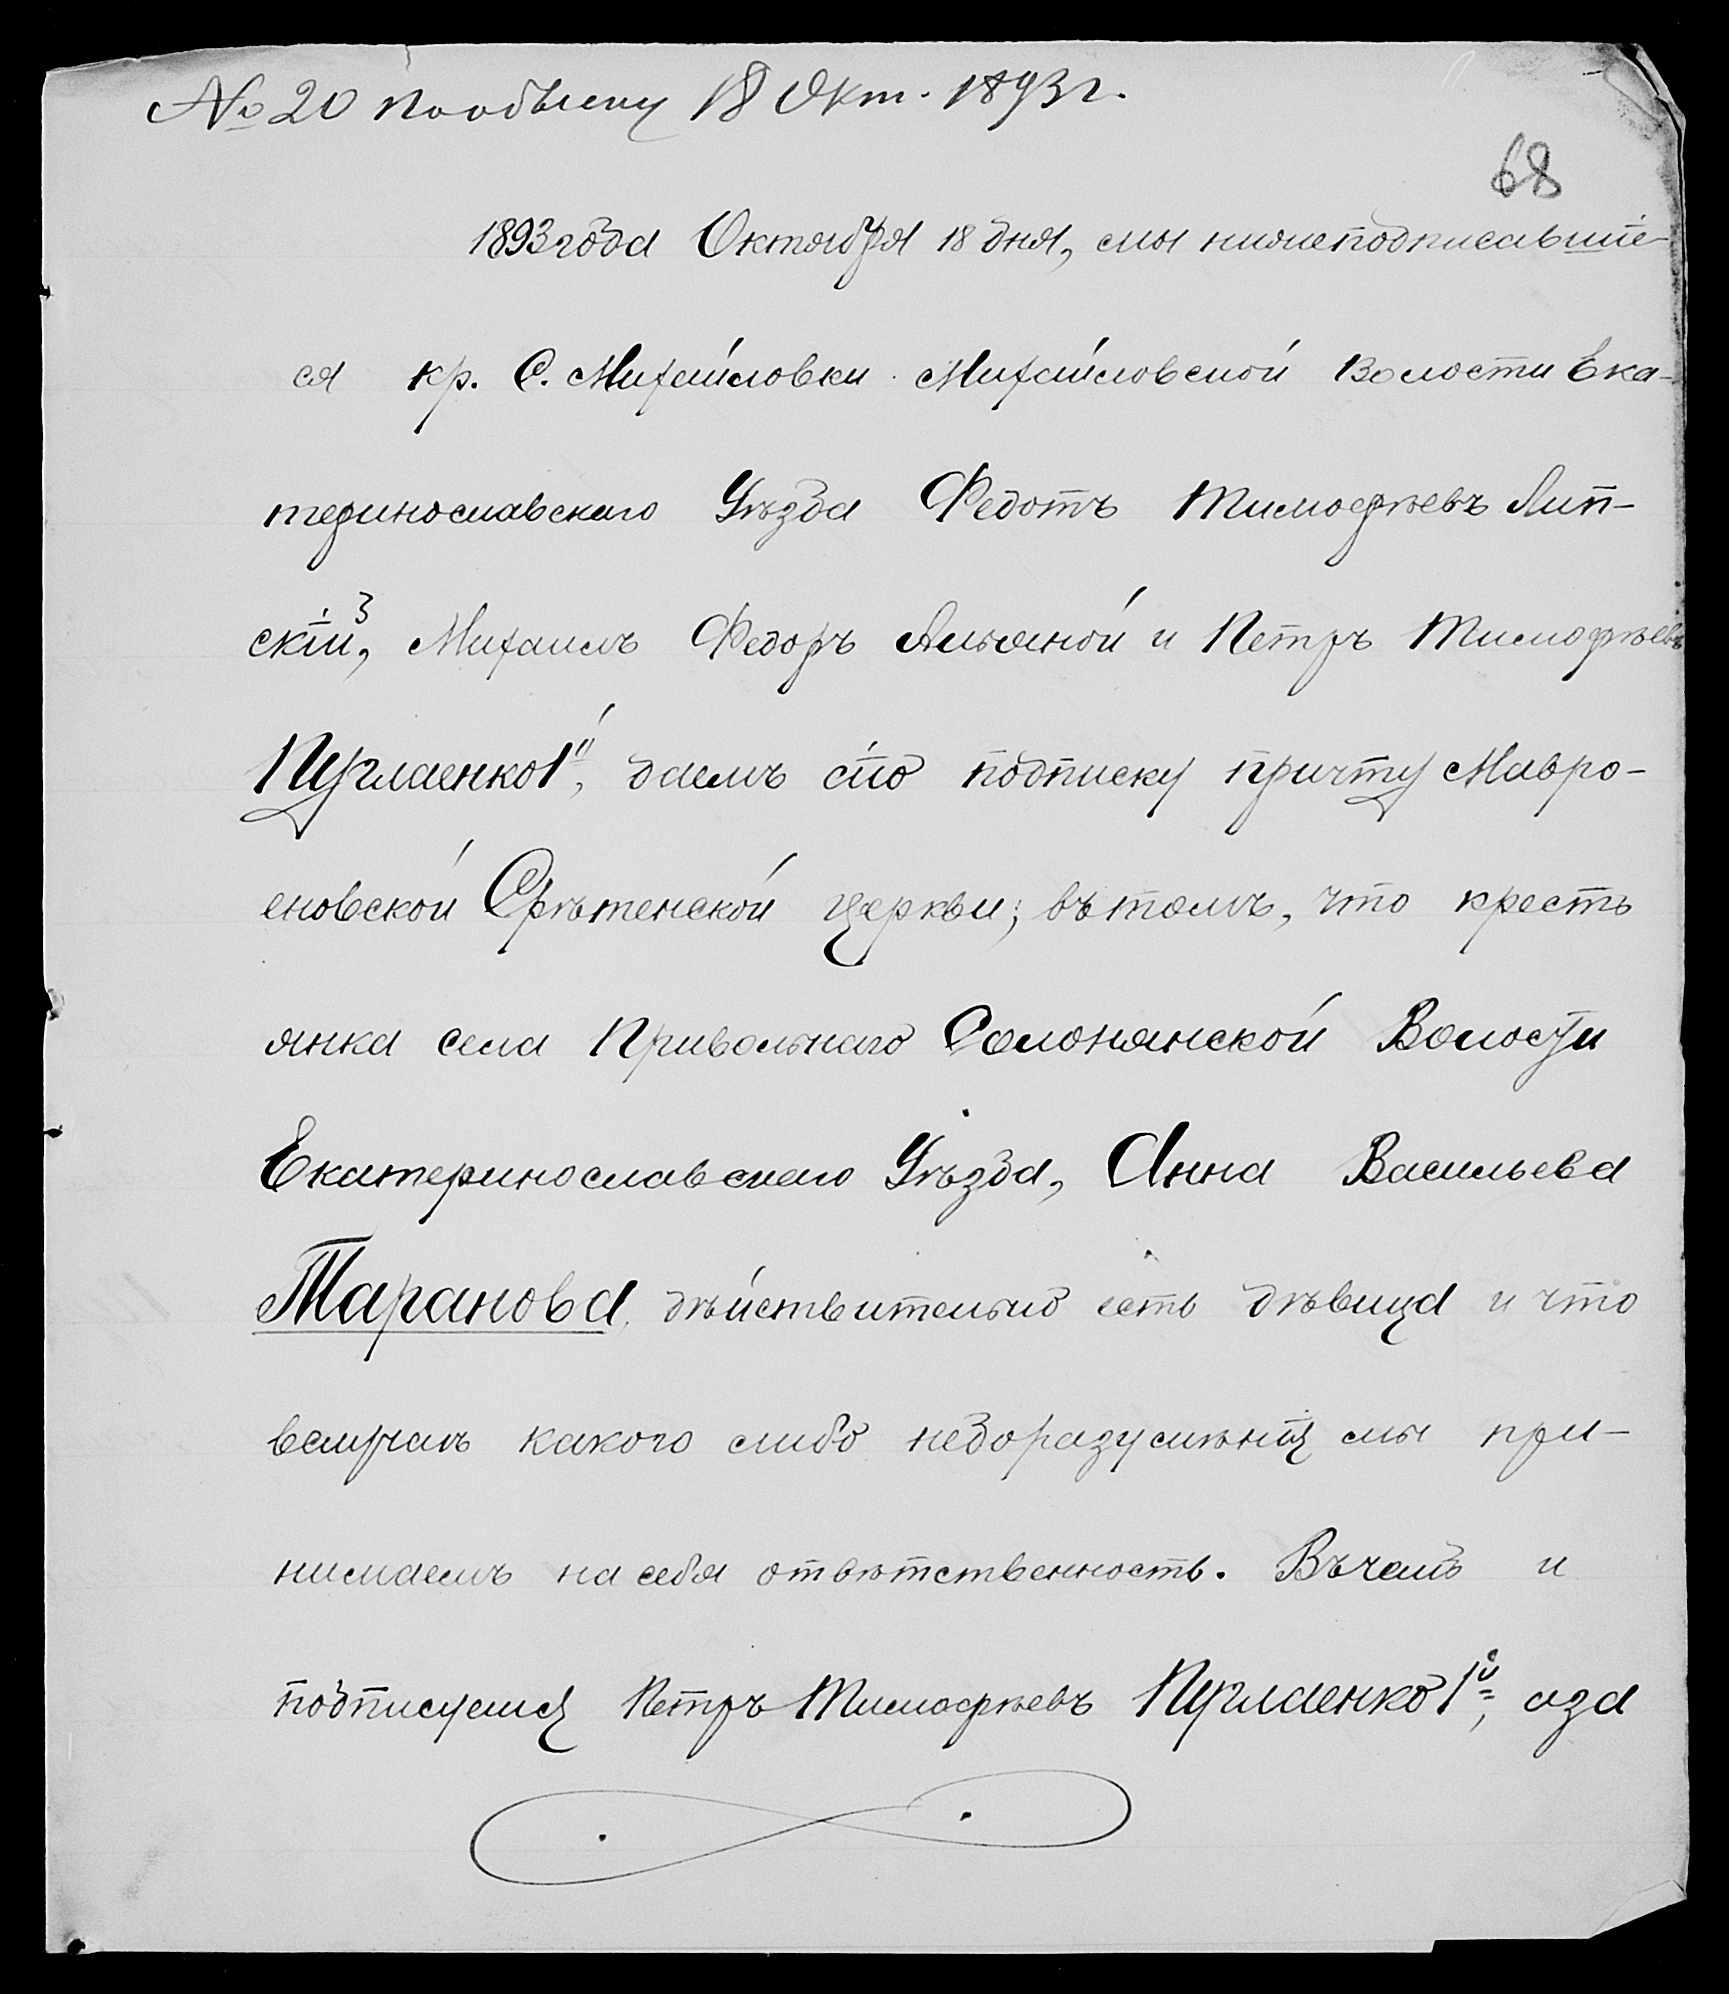 № 20 по обыску 18 Окт. 1893 г.
68
1893 года Октября 18 дня, мы нижеподписавшіе-
ся кр. С. Михайловки Михайловской Волости Ека-
теринославскаго Уѣзда Федотъ Тимофѣевъ Лип-
скій, Михаилъ Федоръ и Петръ Тимофѣевъ
даемъ сію подписку причту Мавро-
еновской Срѣтенской церкви; въ томъ, что кресть
янка села Привольнаго Солонянской Волости
Екатеринославскаго Уѣзда, Анна Васильева
Таранова, дѣйствительно есть дѣвица и что
вслучаѣ какого либо недоразумѣнія мы при-
нимаемъ на себя отвѣтственность. Въ чемъ и
подписуемся Петръ Тимофѣевъ аза